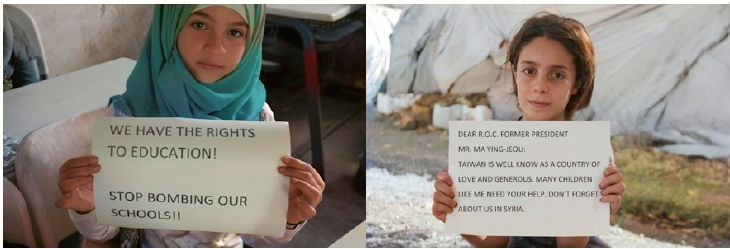 WE HAVE THE RIGHTS
TO EDUCATION!
STOP BOMBING OUR
SCHOOLS!!
DEAR R.O.C. FORMER PRESIDENT
MR. MA YING-JEOU:
TAIWAN IS WELL KNOW AS A COUNTRY OF
LOVE AND GENEROUS. MANY CHILDREN
LIKE ME NEED YOUR HELP. DON'T FORGET
ABOUT US IN SYRIA.